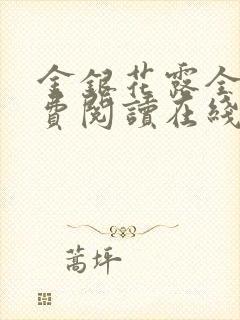 金銀花露全
費閱讀在綫
蒿坪